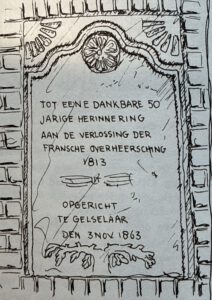 TOT EENE DANKBARE 50
JARIGE HERINNERING
AAN DE VERLOSSING DER
FRANSCHE OVERHEERSCHING
1813
OPGERICHT
TE GELSELAAR
DEN 3 NOV. 1863